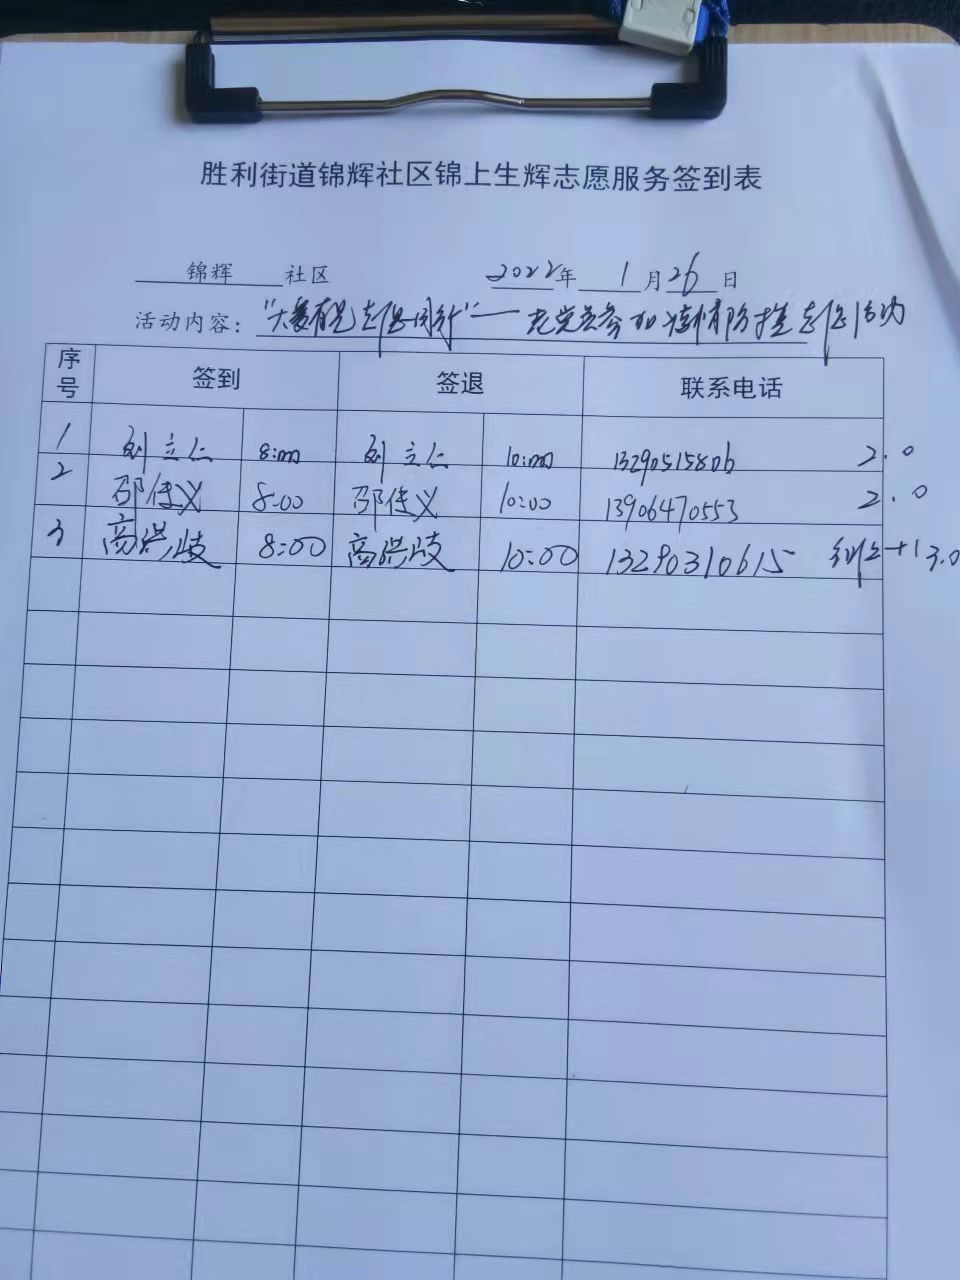 胜利街道锦辉社区锦上生辉志愿服务签到表
锦辉 社区 2022年 1月26日
活动内容：“大爱有光 志愿同行”——老党员参加疫情防控志愿活动
序号 签到 签退 联系电话
1 刘立仁 8:00 刘立仁 10:00 13290515806 2.0
2 邵传义 8:00 邵传义 10:00 13906470553 2.0
3 高洪岐 8:00 高洪岐 10:00 13290310615 +1 3.0